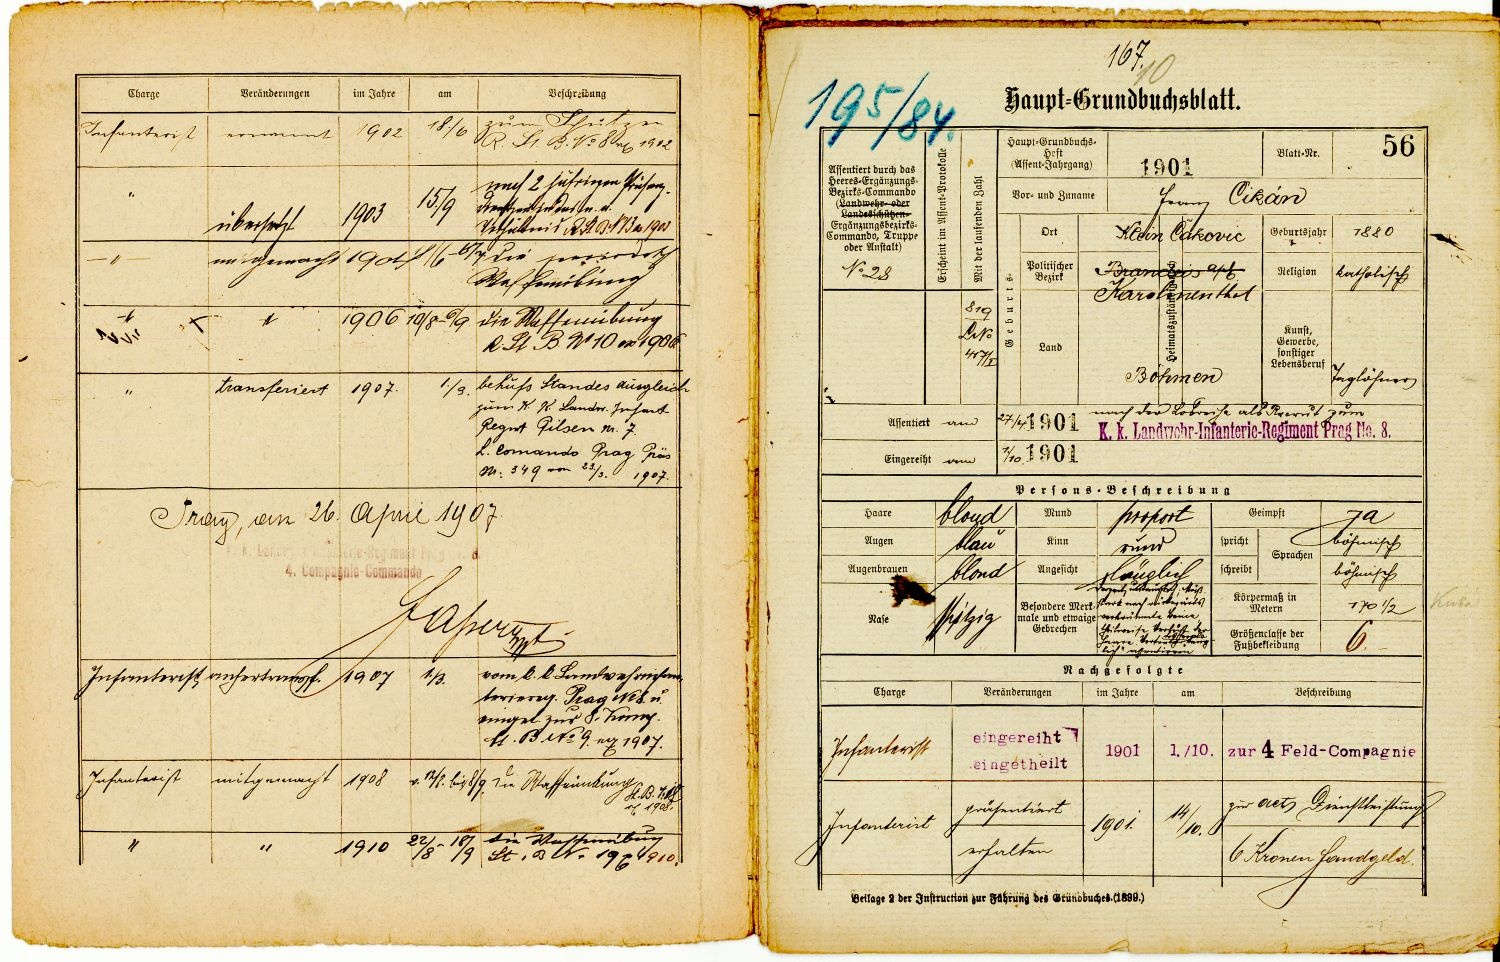 Charge Veränderungen im Jahre am Beschreibung
Infanterist ernannt 1902 18/6 zum Schützen
R. St. B. No 8 ex 1902
" übersetzt 1903 15/9 nach 2 jährigen Präsenz-
" mitgemacht 1904 die
Waffenübung
" " 1906 10/8 - 6/9 die Waffenübung
R. St. B No 10 ex 1906
" transferiert 1907. 1./3. behufs Standes Ausgleich
zum K. K. Landw. Infant
Regmt Pilsen Nr. 7.
L. Comando Prag Präs
Nr. 349 von 23/3. 1907.
Prag, am 26. April 1907
k. k. Landwehr-Infanterie-Regiment Prag No. 8.
4. Compagnie-Commando
Infanterist anhertransf. 1907 1./3. vom k. k. Landwehrinfan-
teriereg. Prag No 8 u.
eingel. zur 8. Komp.
St. B. No 9 ex 1907.
Infanterist mitgemacht 1908 v. bis 8/9. die Waffenübung
St. B.
ex 1908.
" " 1910 22/8 - 18/9 die Waffenübung
St. B No 19 ex 1910.
167.
10
195/84.
Haupt-Grundbuchsblatt.
Assentiert durch das
Heeres-Ergänzungs-
Bezirks-Commando
(Landwehr- oder
Landesschützen-
Ergänzungsbezirks-
Commando, Truppe
oder Anstalt)
No 28
Erscheint im Assent-Protokolle
Mit der laufenden Zahl
819
Haupt-Grundbuchs-
Heft
(Assent-Jahrgang)
1901
Blatt-Nr.
56
Vor- und Zuname
Franz Cikán
Geburts-
Ort
Klein Čakovic
Geburtsjahr
1880
Politischer
Bezirk
Brandeis a/E
Karolinenthal
Heimatszuständig
Religion
katholisch
Land
Böhmen
Kunst,
Gewerbe,
sonstiger
Lebensberuf
Taglöhner
Assentiert am 27/4. 1901 nach der Losreihe als Recrut zum
K. k. Landwehr-Infanterie-Regiment Prag No. 8.
Eingereiht am 1/10. 1901
Persons-Beschreibung
Haare blond Mund proport Geimpft ja
Augen blau Kinn rund spricht Sprachen böhmisch
Augenbrauen blond Angesicht länglich schreibt böhmisch
Nase spitzig Besondere Merk-
male und etwaige
Gebrechen
Körpermaß in
Metern
170 1/2
Größenclasse der
Fußbekleidung
6.
Nachgefolgte
Charge Veränderungen im Jahre am Beschreibung
Infanterist eingereiht
eingetheilt 1901 1./10. zur 4 Feld-Compagnie
Infanterist präsentiert 1901. 14/10. zur act. Dienstleistung
erhalten 6 Kronen Handgeld.
Beilage 2 der Instruction zur Führung des Grundbuches. (1899.)